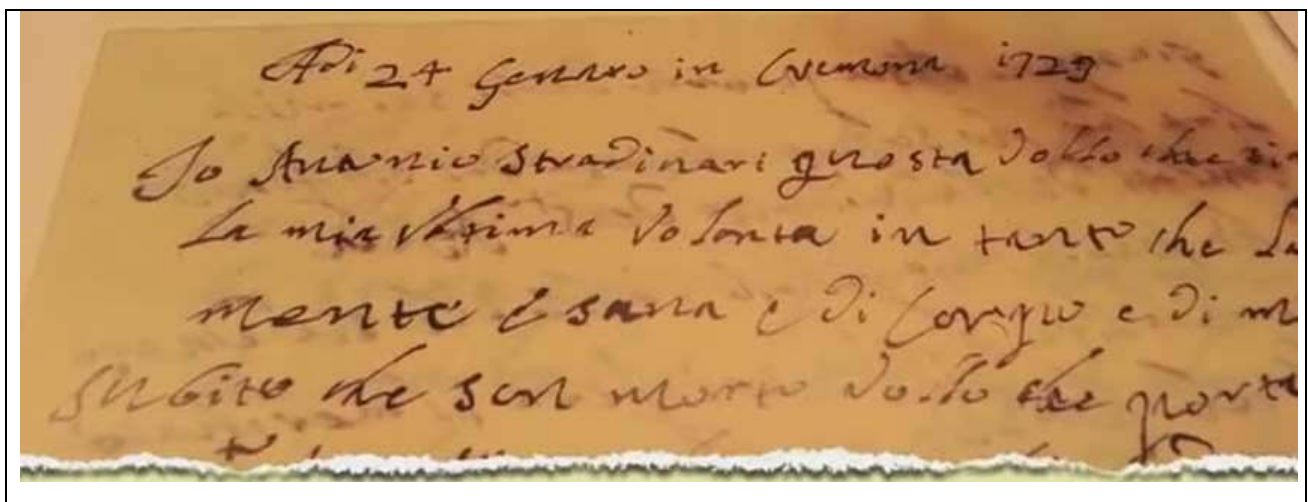 Adi 24 Genaro in Cremona 1729
Io Antonio Stradivari questa vollio che
La mia Vltima Volonta in tanto che La
mente è sana e di Corpo e di m
Subito che son morto vollio che porta